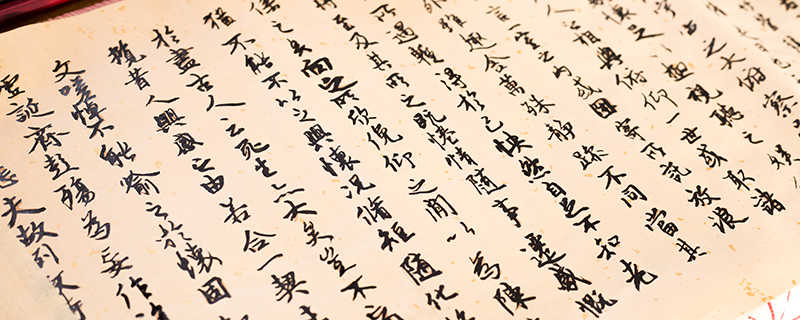 之大俯察
視聽之娛
人之相與俯仰一世或取諸
言一室之內或因寄所託放浪
雖趣舍萬殊靜躁不同當其
所遇暫得於己快然自足不知老
將至及其所之既惓情隨事遷感慨
係之矣向之所欣俛仰之間以為陳
猶不能不以之興懷況脩短隨化終
於盡古人云死生亦大矣豈不痛
攬昔人興感之由若合一契未
文嗟悼不能喻之於懷固
虛誕齊彭殤為妄作後
悲夫故列敘時